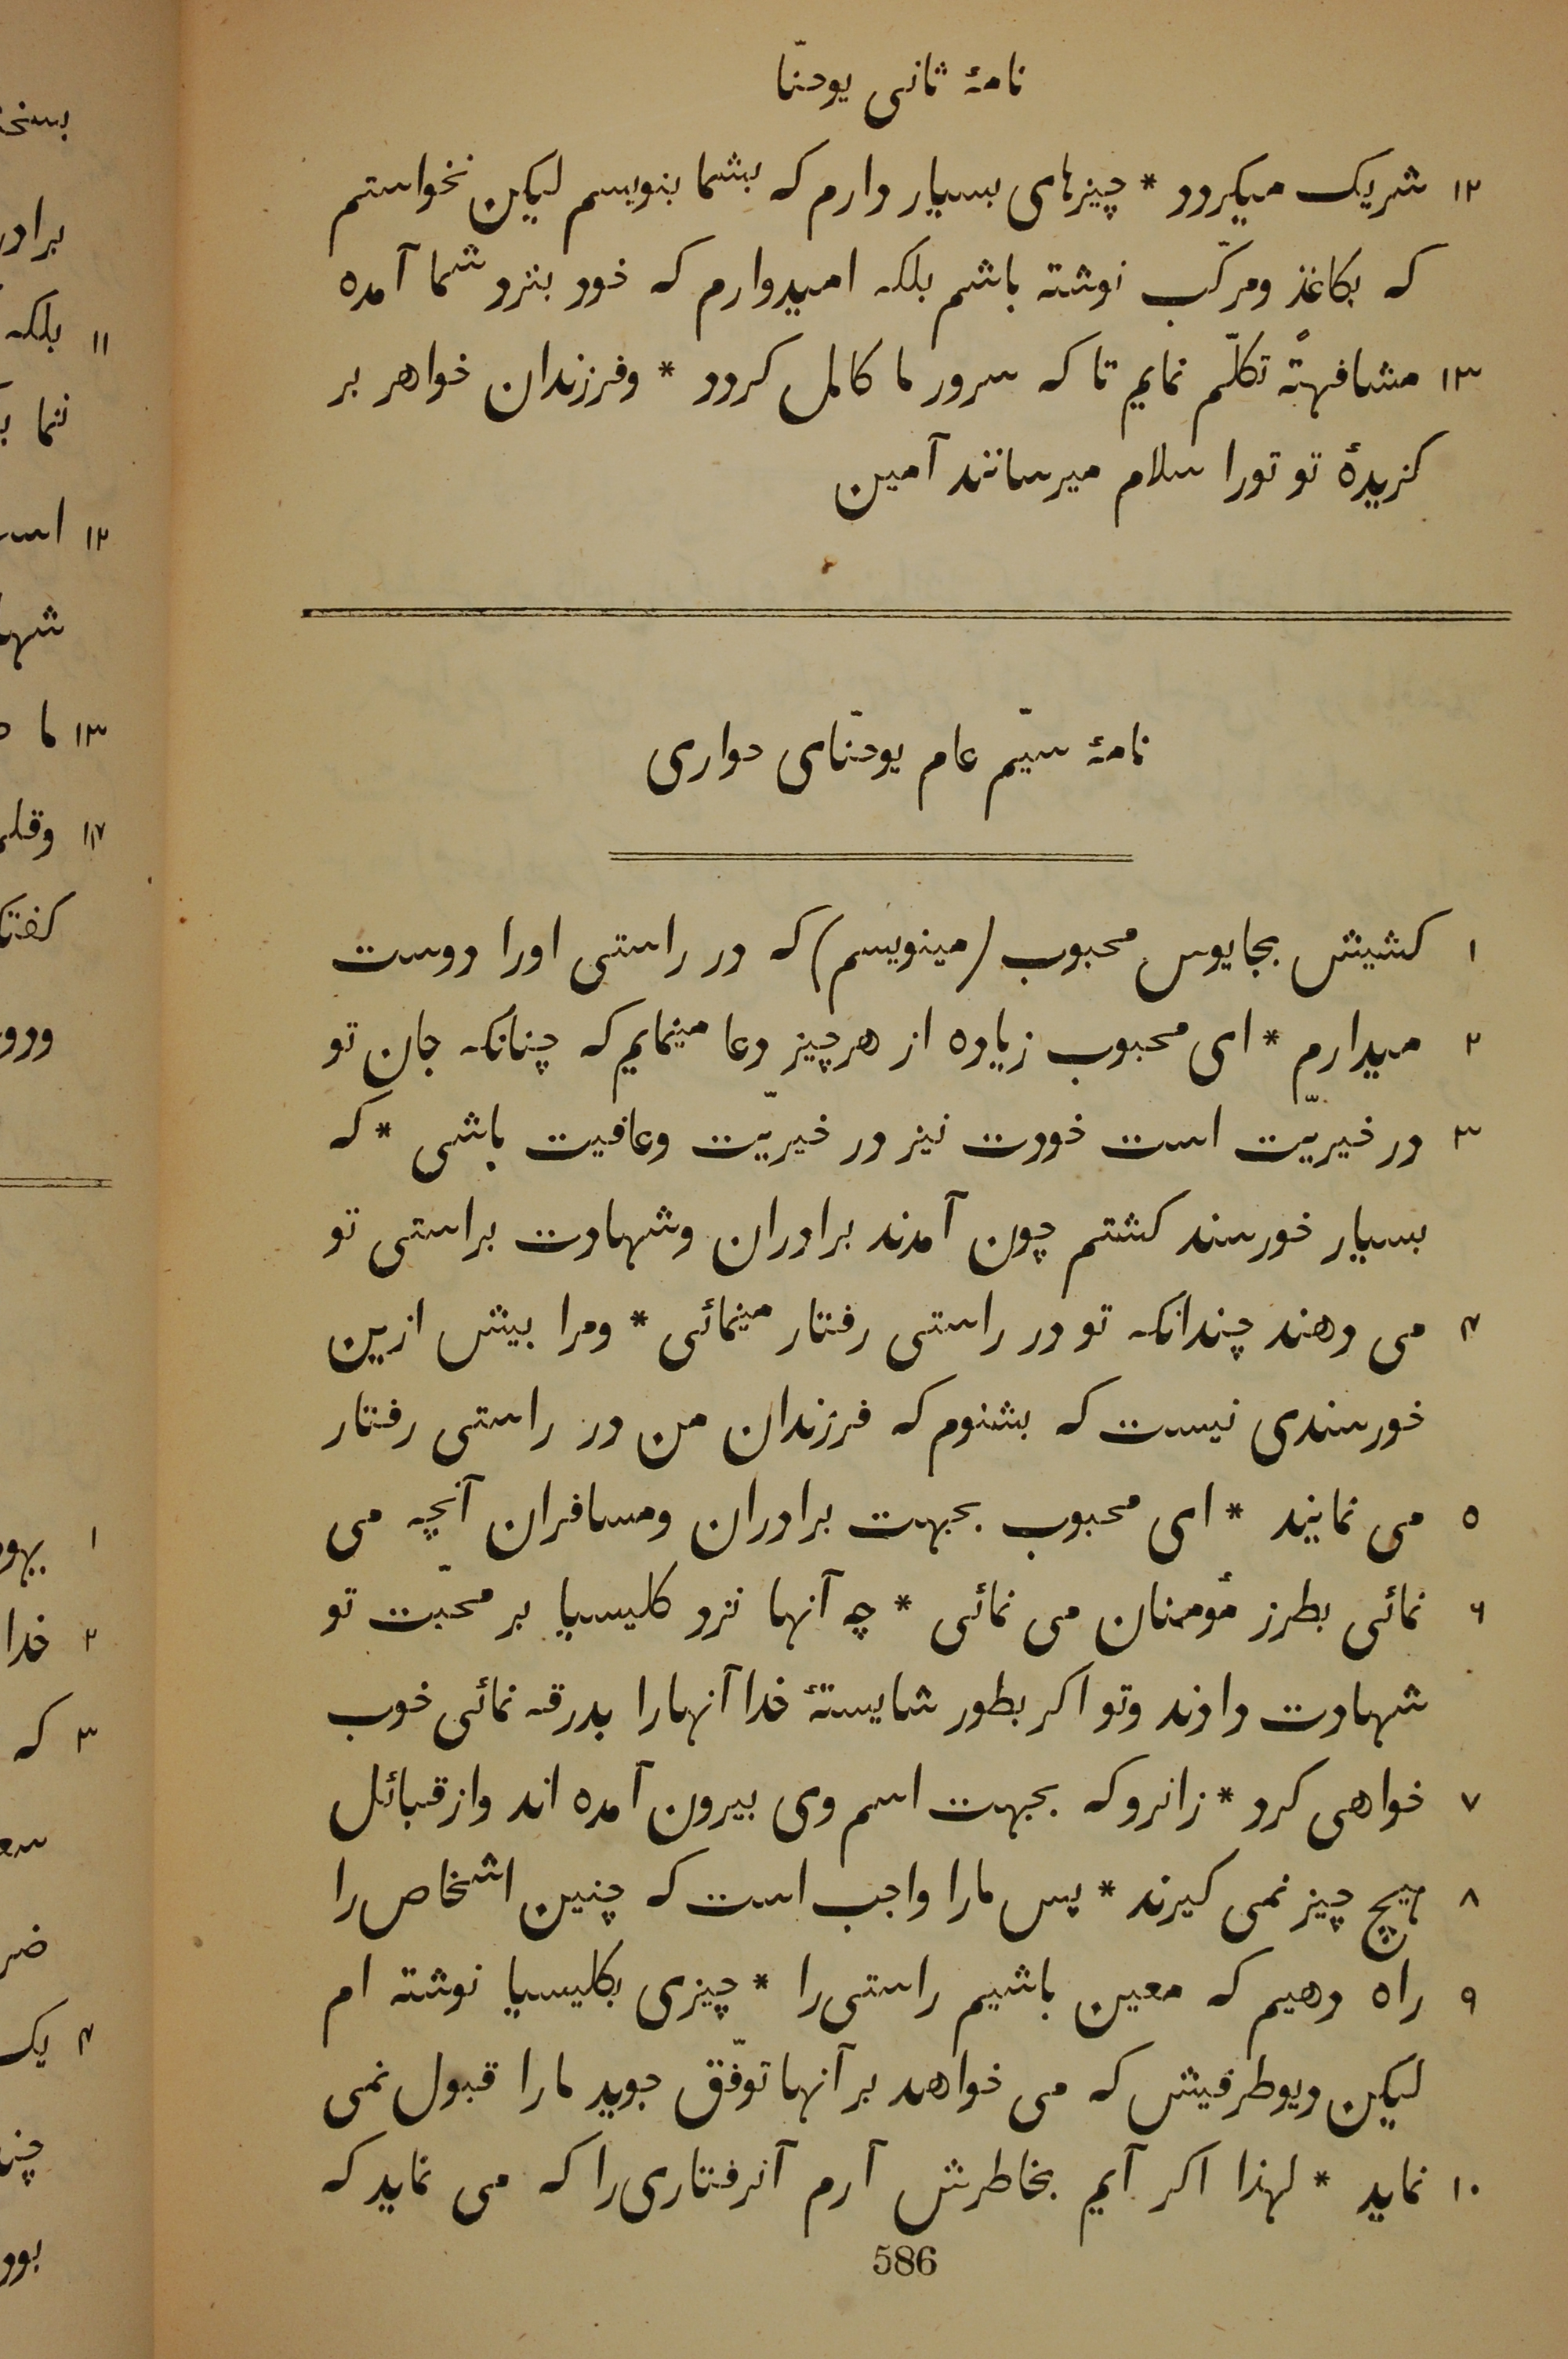 نامهٔ ثانی یوحنّا
۱۲ شریک میکردد * چیزهای بسیار دارم که بشما بنویسم لیکن نخواستم
که بکاغذ ومرکّب نوشته باشم بلکه امیدوارم که خود بنزد شما آمده
۱۳ مشافهتهً تکلّم نمایم تا که سرور ما کامل کردد * وفرزندان خواهر بر
کزیدهٔ تو تورا سلام میرسانند آمین
نامهٔ سیّم عام یوحنّای حواری
۱ کشیش بجایوس محبوب (مینویسم) که در راستی اورا دوست
۲ میدارم * ای محبوب زیاده از هرچیز دعا مینمایم که چنانکه جان تو
۳ در خیریّت است خودت نیز در خیریّت وعافیت باشی * که
بسیار خورسند کشتم چون آمدند برادران وشهادت براستی تو
۴ می دهند چندانکه تو در راستی رفتار مینمائی * ومرا بیش ازین
خورسندی نیست که بشنوم که فرزندان من در راستی رفتار
۵ می نمایند * ای محبوب بجهت برادران ومسافران آنچه می
۶ نمائی بطرز مؤمنان می نمائی * چه آنها نزد کلیسیا بر محبّت تو
شهادت دادند وتو اکر بطور شایستهٔ خدا آنهارا بدرقه نمائی خوب
۷ خواهی کرد * زانرو که بجهت اسم وی بیرون آمده اند واز قبائل
۸ هیچ چیز نمی کیرند * پس مارا واجب است که چنین اشخاص را
۹ راه دهیم که معین باشیم راستی را * چیزی بکلیسیا نوشته ام
لیکن دیوطرفیش که می خواهد بر آنها توفّق جوید مارا قبول نمی
۱۰ نماید * لهذا اکر آیم بخاطرش آرم آنرفتاری را که می نماید که
586
۱۱ بلکه
۱۲
۱۳ ما
۱۴
۱
۲ خدا
۳ که
۴ یک